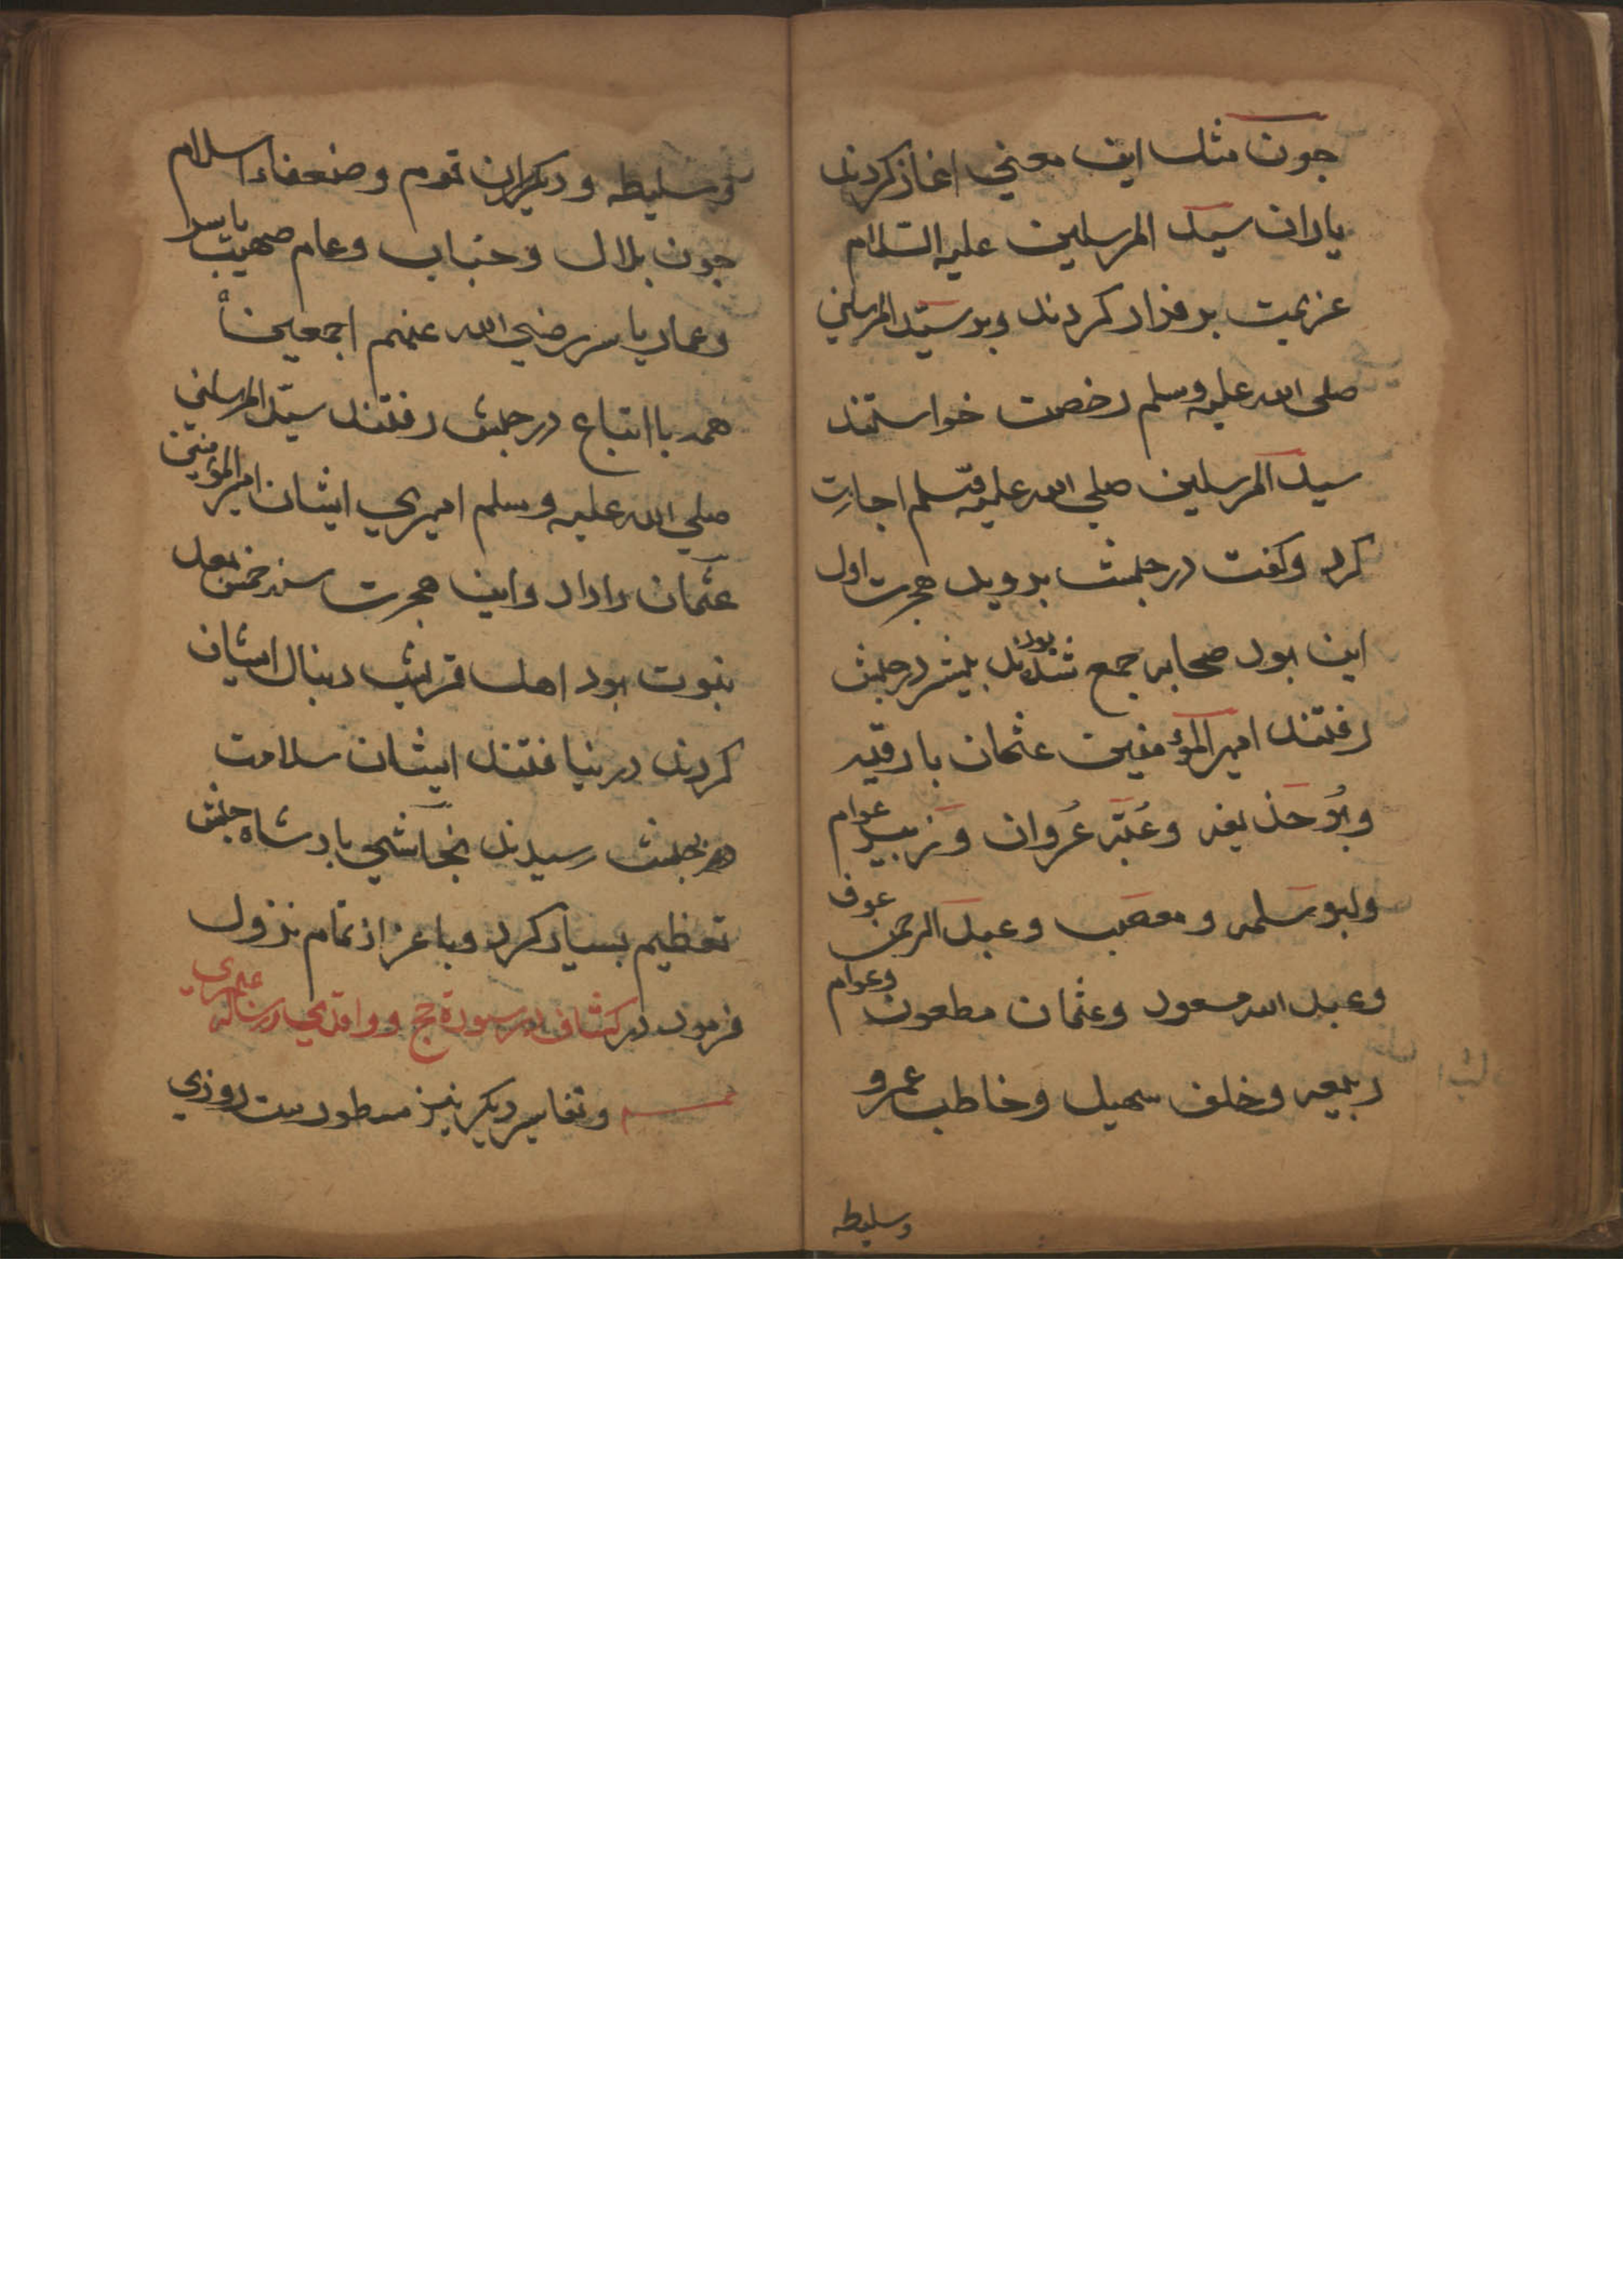 جون مثل این معنی اغاز کردند
یاران سید المرسلین علیه السلام
عزیمت بر فرار کردند و بر سید المرسلین
صلی الله علیه وسلم رخصت خواستند
سید المرسلین صلی الله علیه وسلم اجازت
کرد و کفت در حبش بروید هجرت اول
این بود صحابه جمع شده بودند بیشتر در حبش
رفتند امیر المؤمنین عثمان با رقیه
وبو حذیفه وعتبه عروان وزبیر عوام
وابو سلمه و مصعب وعبد الرحمن عوف
وعبد الله مسعود وعثمان مطعون وعوام
ربیعه وخلف سهیل وخاطب عمرو
وسلیطه
وسلیطه و دیکران قوم وضعفاء اسلام
جون بلال وخباب وعام صهیب یاسر
وعمار یاسر رضی الله عنهم اجمعین
همه با اتباع در حبش رفتند سید المرسلین
صلی الله علیه وسلم امیری ایشان امیر المؤمنین
عثمان را داد واین هجرت سنه خمس بعد
نبوت بود اهل قریش دنبال ایشان
کردند در نیافتند ایشان سلامت
در حبش رسیدند نجاشی بادشاه حبش
تعظیم بسیار کرد وباعزاز تمام نزول
فرمود در کشاف در سورة حج و واقدی در رساله
وتفاسیر دیکر نیز مسطورست روزی